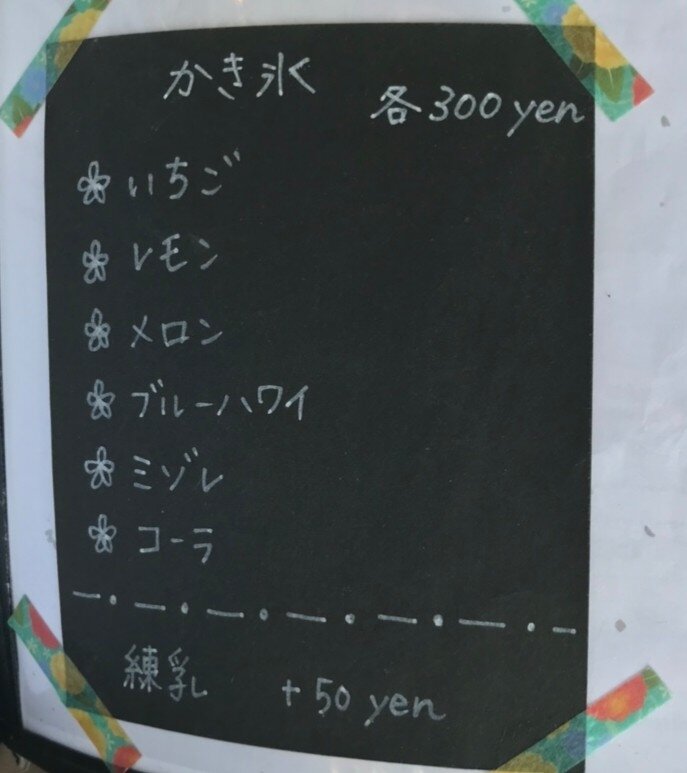 かき氷
各300yen
いちご
レモン
メロン
ブルーハワイ
ミゾレ
コーラ
練乳 +50 yen